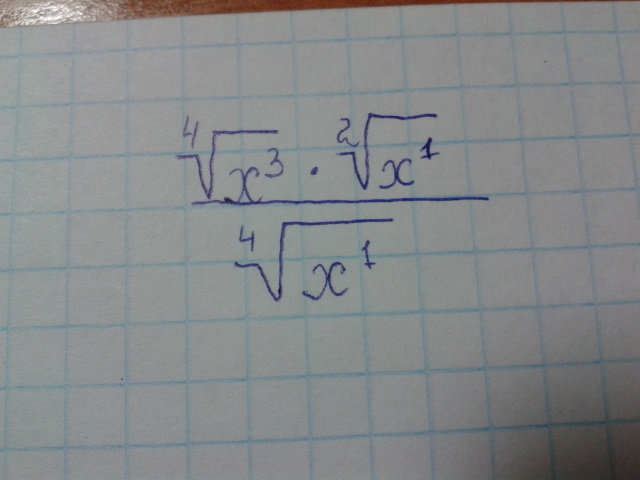 ⁴√x³ · ²√x¹
⁴√x¹